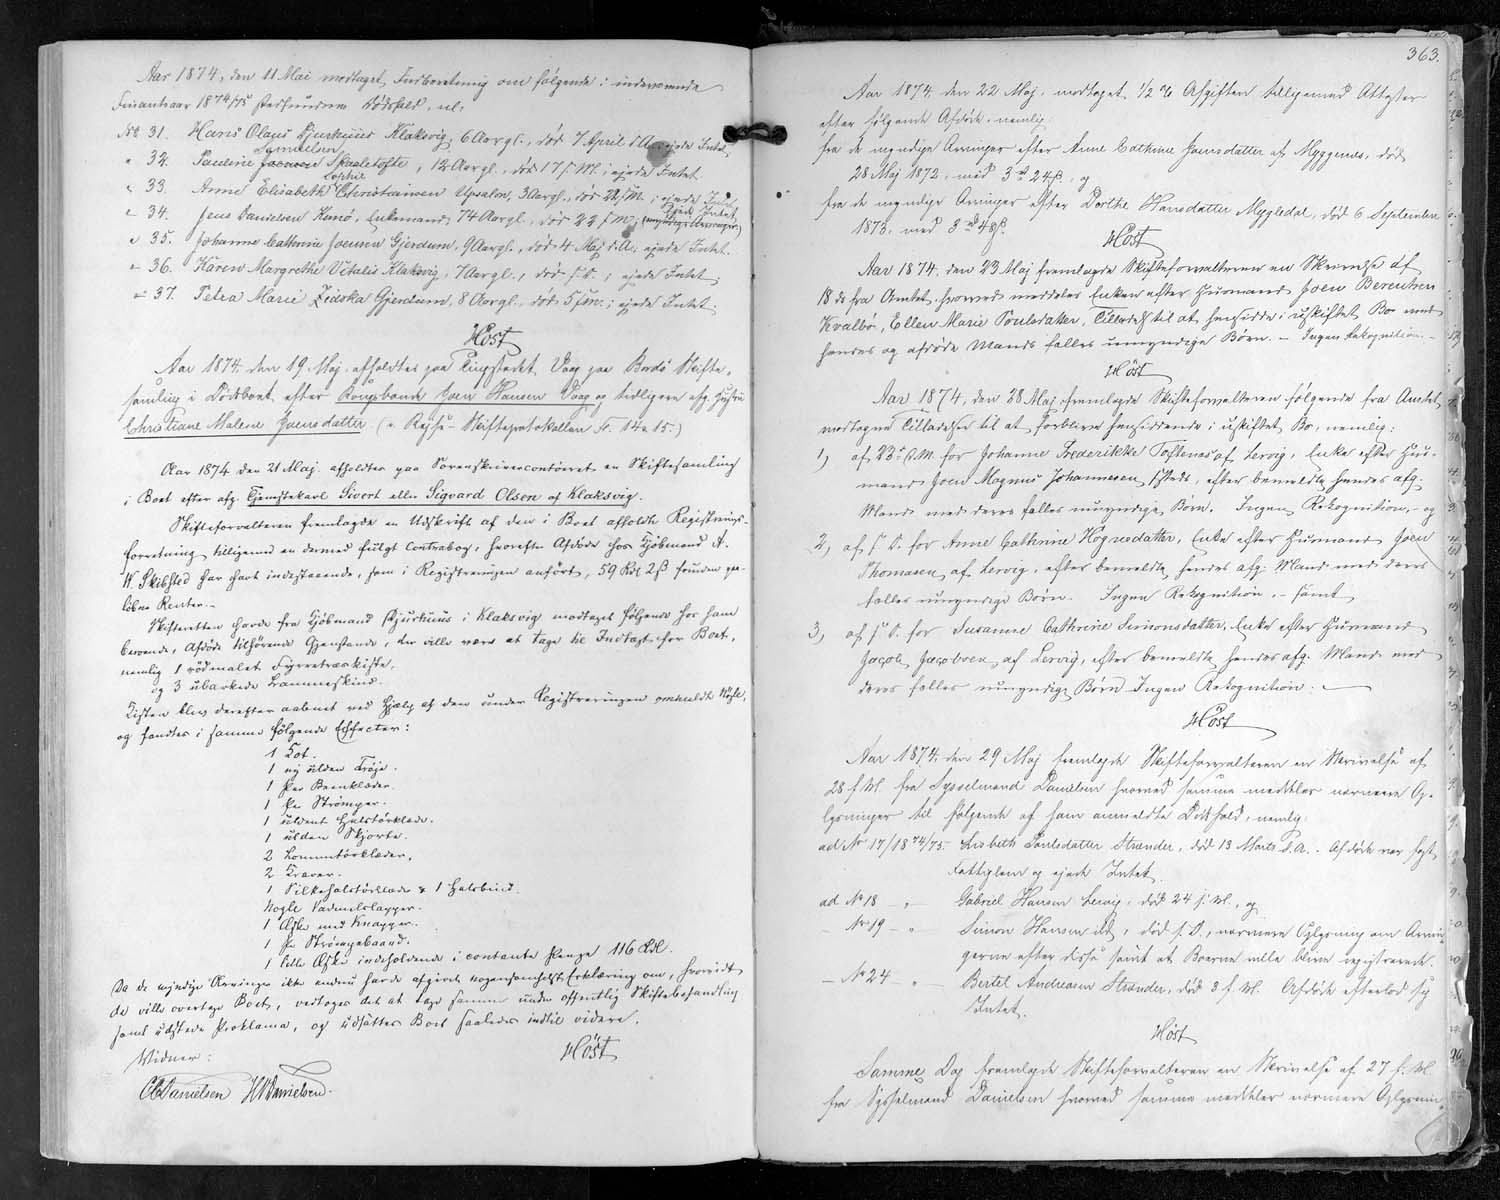 Aar 1874, den 11 Mai modtaget Indberetning om følgende i indeværende
Finantsaar 1874/75 stedfundne Dødsfald, nl.
No 31. Hans Olaus Djurhuus Klaksvig, 6 Aargl., død 7 April d. A., ejede Intet.
" 32. Pauline Joensen Samuelsen Skaaletofte, 12 Aargl., død 17 f. M.; ejede Intet.
" 33. Anne Elisabeth Sophie Christiansen Upsalon, 3 Aargl., død 22 f. M.; ejede Intet.
" 34. Jens Danielsen Kunö, Enkemand, 74 Aargl., død 22 f. M.; ejede Intet (myndige Arvinger)
" 35. Johanne Cathrine Joensen Gjerdum, 9 Aargl., død 4 Maj d. A., ejede Intet.
" 36. Karen Margrethe Vitalis Klaksvig, 7 Aargl., død s. D.; ejede Intet.
" 37. Petra Marie Zidska Gjerdum, 8 Aargl., død 5 s. M.; ejede Intet.
Höst
Aar 1874 den 19 Maj afholdtes paa Tingstedet Vaag paa Bordö Skifte-
samling i Dödsboet efter Kongsbonde Joen Hansen Vaag og tidligere afg. Hustru
Christiane Malene Joensdatter. (v. Rejse-Skifteprotokollen Fo. 14 & 15.)
Aar 1874 den 21 Maj. afholdtes paa Sorenskrivercontoiret en Skiftesamling
i Boet efter afg. Tjenestekarl Sivert eller Sigvard Olsen af Klaksvig.
Skifteforvalteren fremlagde en Udskrift af den i Boet afholdte Registrerings-
forretning tilligemed en dermed fulgt Contrabog, hvorefter Afdöde hos Kjöbmand A.
W. Skibsted har havt indestaaende, som i Registreringen anfört, 59 Rdl 2 ß foruden paa-
löbne Renter.-
Skifteretten havde fra Kjöbmand Djurhuus i Klaksvig modtaget fölgende hos ham
beroende, Afdöde tilhörende Gjenstande, der ville være at tage til Indtægt for Boet,
nemlig 1 rödmalet Fyrretræskiste,
og 3 ubarkede Lammeskind.
Kisten blev derefter aabnet ved Hjælp af den under Registreringen omhandlede Nögle,
og fandtes i samme fölgende Effecter:
1 Kot.
1 ny ulden Tröje.
1 Par Beenklæder.
1 Par Strömper.
1 uldent Halstörklæde.
1 ulden Skjorte.
2 Lommetörklæder.
2 Kraver.
1 Silkehalstörklæde & 1 Halsbind.
Nogle Vadmelslapper.
1 Æske med Knapper.
1 Par Strömpebaand.
1 lille Æske indeholdende i contante Penge 116 Rdl.
Da de myndige Arvinger ikke endnu havde afgivet nogensomhelst Erklæring om, hvorvidt
de ville overtage Boet, vedtoges det at tage samme under offentlig Skiftebehandling
samt udstede Proklama, og udsattes Boet saaledes indtil videre.
Höst
Widner:
C Danielsen H Danielsen.
363.
Aar 1874 den 22 Maj, modtaget 1/2 % Afgiften tilligemed Attester
efter følgende Afdøde, nemlig:
fra de myndige Arvinger efter Anne Cathrine Joensdatter af Myggenæs, død
28 Maj 1872, med 3 rd 24 ß, og
fra de myndige Arvinger efter Dorthe Hansdatter Mygledal, død 6 September
1873, med 3 rd 48 ß.
Höst
Aar 1874 den 23 Maj fremlagde Skifteforvalteren en Skrivelse af
18 ds fra Amtet, hvorved meddeles Enken efter Huusmand Joen Berentsen
Kvalbö, Ellen Marie Poulsdatter, Tilladelse til at hensidde i uskiftet Bo med
hendes og afdøde Mands fælles umyndige Børn. - Ingen Rekognition. -
Höst
Aar 1874, den 28 Maj fremlagde Skifteforvalteren følgende fra Amtet
modtagne Tilladelser til at forblive hensiddende i uskiftet Bo, nemlig:
1) af 23 d. M. for Johanne Frederikke Toftenæs af Lervig, Enke efter Huus-
mand Joen Magnus Johannesen sstedt, efter bemeldte hendes afg.
Mand med deres fælles umyndige Børn. Ingen Rekognition, - og
2, af s. D. for Anne Cathrine Högnesdatter, Enke efter Huusmand Joen
Thomasen af Lervig, efter bemeldte hendes afg. Mand med deres
fælles umyndige Børn. Ingen Rekognition, - samt
3, af s. D. for Susanne Cathrine Simonsdatter, Enke efter Huusmand
Jacob Jacobsen af Lervig, efter bemeldte hendes afg. Mand med
deres fælles umyndige Børn Ingen Rekognition. -
Höst
Aar 1874, den 29 Maj fremlagde Skifteforvalteren en Skrivelse af
28 f. M. fra Sysselmand Danielsen hvorved samme meddeler nærmere Op-
lysninger til følgende af ham anmeldte Dødsfald, nemlig:
ad No 17/18 74/75. Lisbeth Poulsdatter Strænder, død 13 Marts d. A. Afdøde var sagt
Fattiglem og ejede Intet.
ad No 18 - " - Gabriel Hansen Lervig, død 24 s. M., og
- No 19 - " - Simon Hansen ibd, død s. D., nærmere Oplysning om Arvin-
gerne efter disse samt at Boerne ville blive registrerede.
- No 24 - " - Bertel Andreasen Strænder, død 3 f. M. Afdøde efterlod sig
Intet.
Höst
Samme Dag fremlagde Skifteforvalteren en Skrivelse af 27 f. M.
fra Sysselmand Danielsen hvorved samme meddeler nærmere Oplysnin-